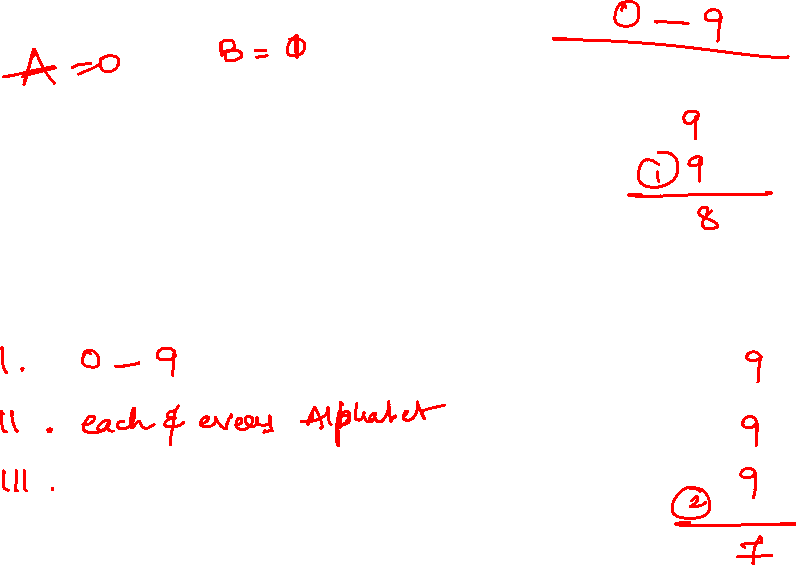 0 - 9
A = 0 B = 0
9
① 9
8
I. 0 - 9
II. each & every Alphabet
III.
9
9
9
② 
7